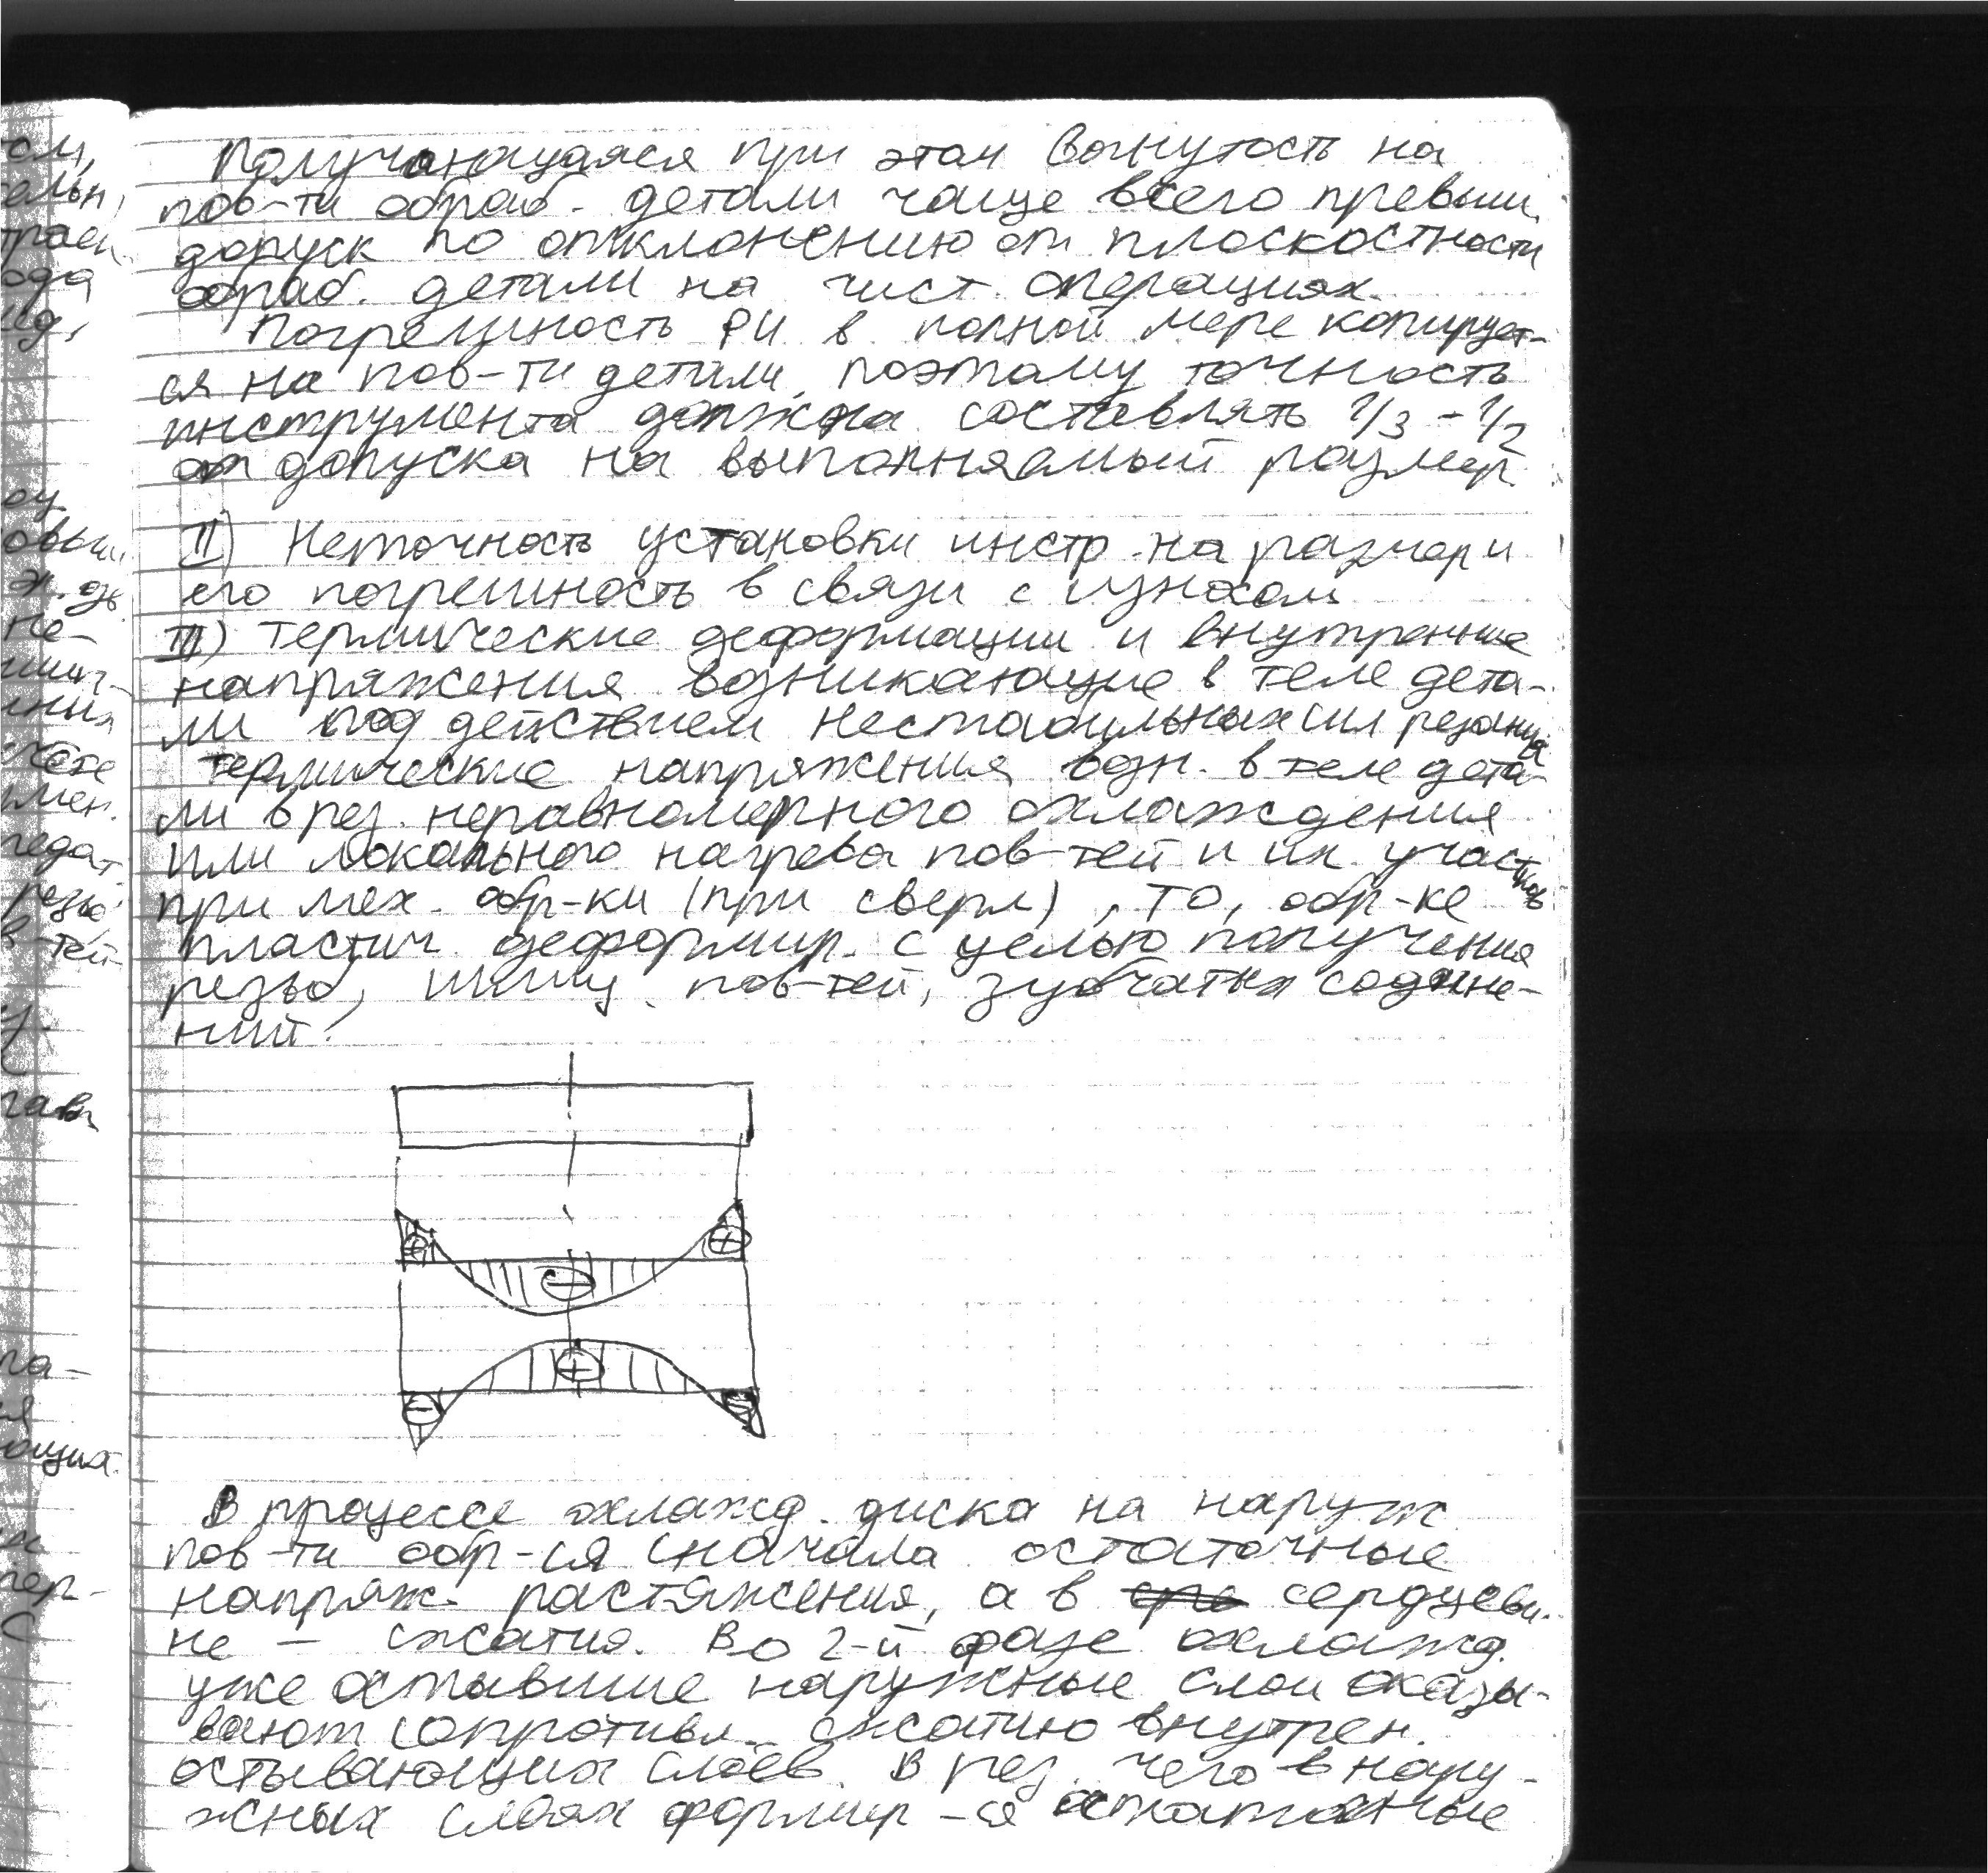 Получающаяся при этом вогнутость на
пов-ти обраб. детали чаще всего превыш.
допуск по отклонению от плоскостности
обраб. детали на чист. операциях.
Погрешность РИ в полной мере копирует-
ся на пов-ти детали, поэтому точность
инструмента должна составлять 1/3 - 1/2
от допуска на выполняемый размер.
II) Неточность установки инстр. на размер и
его погрешность в связи с износом
III) Термические деформации и внутренние
напряжения возникающие в теле дета-
ли под действием нестабильных сил резания
Термические напряжения возн. в теле дета-
ли в рез. неравномерного охлаждения
или локального нагрева пов-тей и их участков
при мех. обр-ки (при сверл), ТО, обр-ке
пластич. деформир. с целью получения
резьб, шлиц. пов-тей, зубчатых соедине-
ний.
+ +
−
+
− −
В процессе охлажд. диска на наруж
пов-ти обр-ся сначала остаточные
напряж. растяжения, а в сердцеви-
не – сжатия. Во 2-й фазе охлажд.
уже остывшие наружные слои оказы-
вают сопротивл. сжатию внутрен.
остывающих слоёв. В рез. чего в нару-
жных слоях формир-ся остаточные